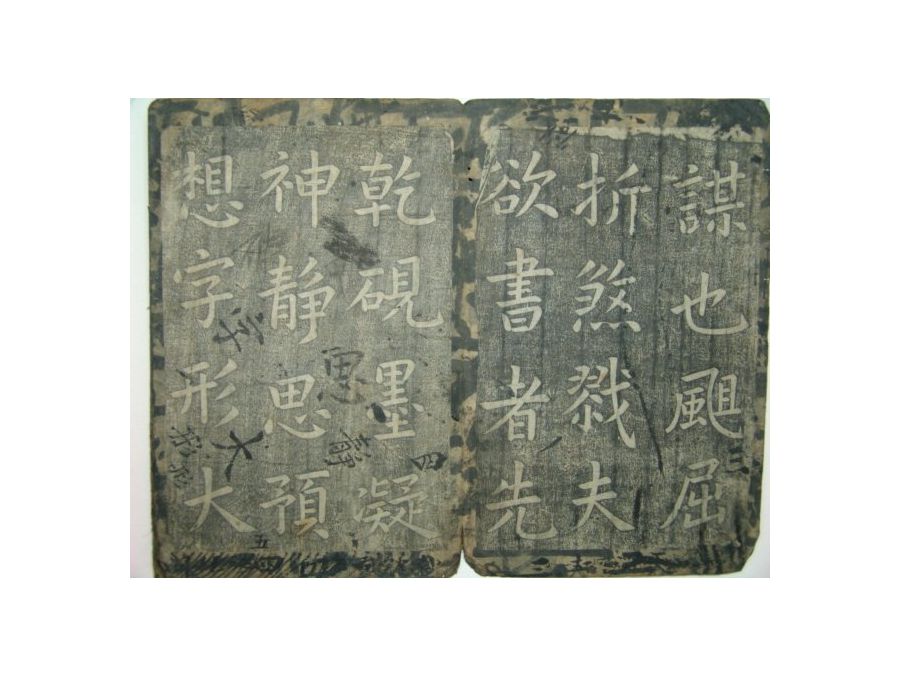 謀也颶屈
折煞戮夫
欲書者先
乾硯墨凝
神靜思預
想字形大
三
四
五
思
靜
字
大